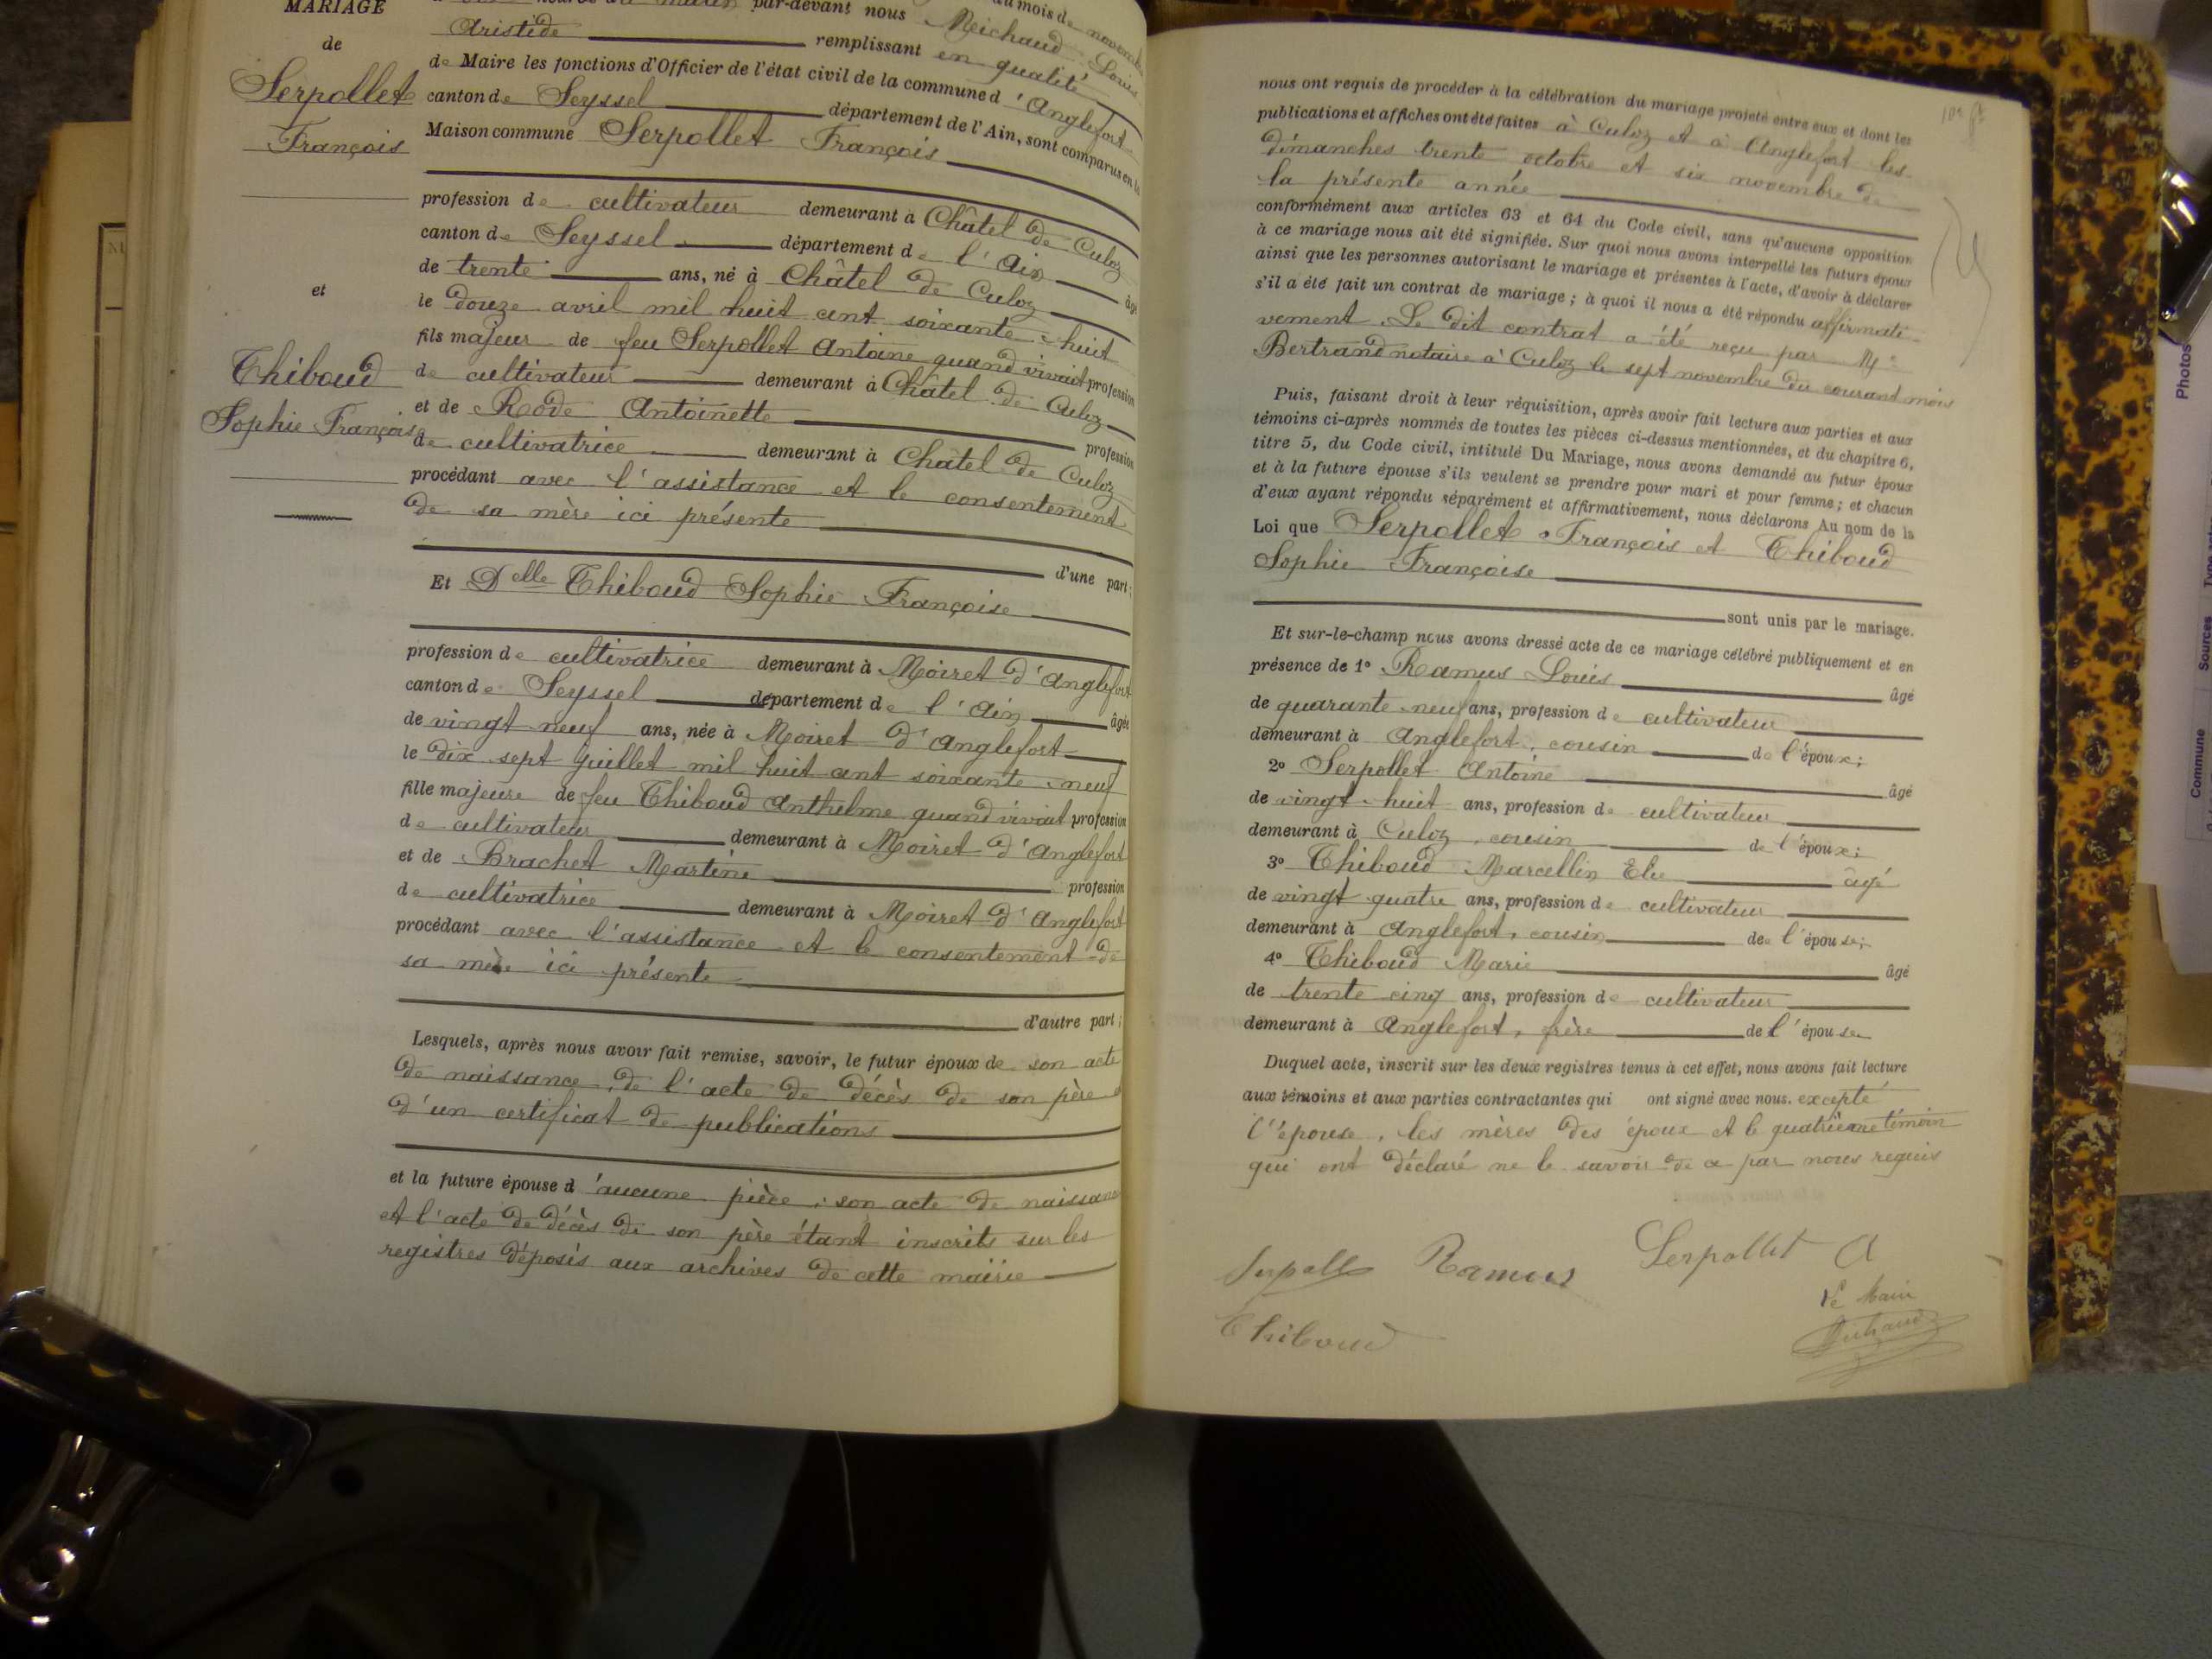 MARIAGE
de
Serpollet
François
et
Thiboud
Sophie Françoise
heures du matin par-devant nous Meichaud Louis
Aristide remplissant en qualité
de Maire les fonctions d'Officier de l'état civil de la commune d'Anglefort
canton de Seyssel département de l'Ain, sont comparus en la
Maison commune Serpollet François
profession de cultivateur demeurant à Châtel de Culoz
canton de Seyssel département de l'Ain âgé
de trente ans, né à Châtel de Culoz
le douze avril mil huit cent soixante-huit
fils majeur de feu Serpollet Antoine quand vivait profession
de cultivateur demeurant à Châtel de Culoz
et de Rode Antoinette profession
de cultivatrice demeurant à Châtel de Culoz
procédant avec l'assistance et le consentement
de sa mère ici présente
d'une part;
Et Delle Thiboud Sophie Françoise
profession de cultivatrice demeurant à Moiret d'Anglefort
canton de Seyssel département de l'Ain âgée
de vingt neuf ans, née à Moiret d'Anglefort
le dix sept juillet mil huit cent soixante-neuf
fille majeure de feu Thiboud Anthelme quand vivait profession
de cultivateur demeurant à Moiret d'Anglefort
et de Brachet Martine profession
de cultivatrice demeurant à Moiret d'Anglefort
procédant avec l'assistance et le consentement de
sa mère ici présente
d'autre part;
Lesquels, après nous avoir fait remise, savoir, le futur époux de son acte
de naissance, de l'acte de décès de son père et
d'un certificat de publications
et la future épouse d'aucune pièce; son acte de naissance
et l'acte de décès de son père étant inscrits sur les
registres déposés aux archives de cette mairie
nous ont requis de procéder à la célébration du mariage projeté entre eux et dont les
publications et affiches ont été faites à Culoz et à Anglefort les
dimanches trente octobre et six novembre de
la présente année
conformément aux articles 63 et 64 du Code civil, sans qu'aucune opposition
à ce mariage nous ait été signifiée. Sur quoi nous avons interpellé les futurs époux
ainsi que les personnes autorisant le mariage et présentes à l'acte, d'avoir à déclarer
s'il a été fait un contrat de mariage; à quoi il nous a été répondu affirmati-
vement. Le dit contrat a été reçu par Me
Bertrand notaire à Culoz le sept novembre du courant mois
Puis, faisant droit à leur réquisition, après avoir fait lecture aux parties et aux
témoins ci-après nommés de toutes les pièces ci-dessus mentionnées, et du chapitre 6,
titre 5, du Code civil, intitulé Du Mariage, nous avons demandé au futur époux
et à la future épouse s'ils veulent se prendre pour mari et pour femme; et chacun
d'eux ayant répondu séparément et affirmativement, nous déclarons Au nom de la
Loi que Serpollet François et Thiboud
Sophie Françoise
sont unis par le mariage.
Et sur-le-champ nous avons dressé acte de ce mariage célébré publiquement et en
présence de 1º Ramus Louis âgé
de quarante-neuf ans, profession de cultivateur
demeurant à Anglefort, cousin de l'époux;
2º Serpollet Antoine âgé
de vingt-huit ans, profession de cultivateur
demeurant à Culoz, cousin de l'époux;
3º Thiboud Marcellin Elie âgé
de vingt quatre ans, profession de cultivateur
demeurant à Anglefort, cousin de l'épouse;
4º Thiboud Marie âgé
de trente cinq ans, profession de cultivateur
demeurant à Anglefort, frère de l'épouse
Duquel acte, inscrit sur les deux registres tenus à cet effet, nous avons fait lecture
aux témoins et aux parties contractantes qui ont signé avec nous. excepté
l'épouse, les mères des époux et le quatrième témoin
qui ont déclaré ne le savoir de ce par nous requis
Ramus Serpollet A
Thiboud
Le Maire
Photos
Sources
Commune